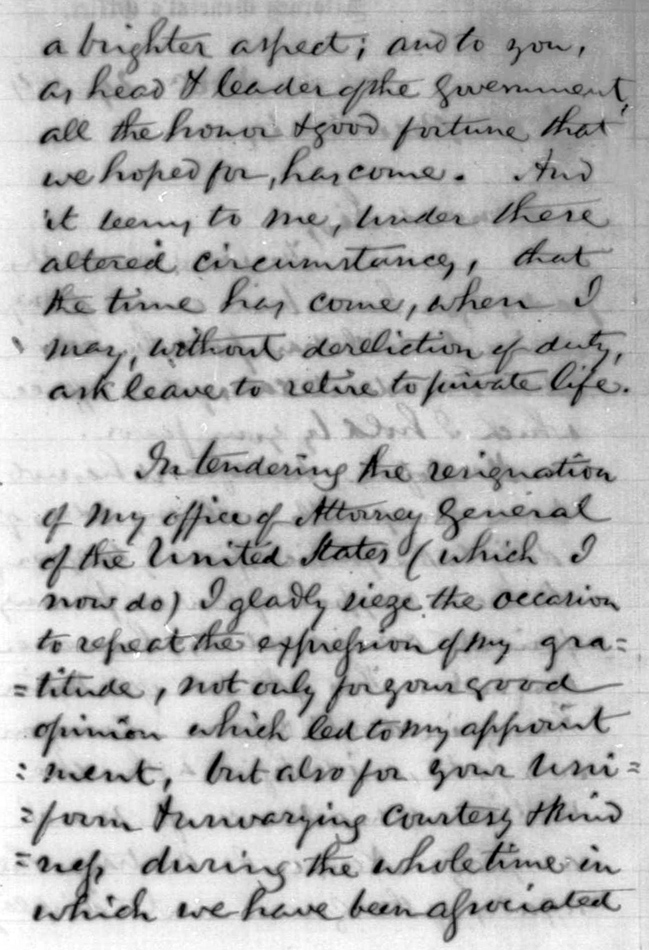 a brighter aspect; and to you,
as head & leader of the Government,
all the honor & good fortune that
we hoped for, has come. And
it seems to me, under these
altered circumstances, that
the time has come, when I
may, without dereliction of duty,
ask leave to retire to private life.
In tendering the resignation
of my office of Attorney General
of the United States (which I
now do) I gladly sieze the occasion
to repeat the expression of my gra=
=titude, not only for your good
opinion which led to my appoint
=ment, but also for your uni=
=form & unvarying courtesy & kind
=ness, during the whole time in
which we have been associated